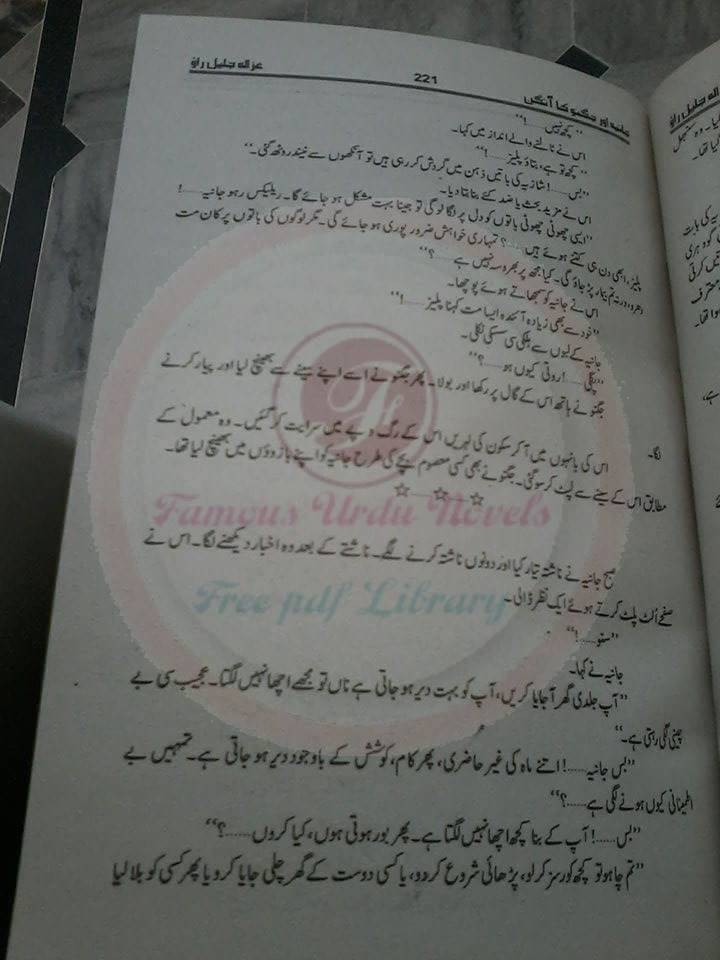 غزالہ جلیل راؤ
221
جانیہ اور جگنو کا آنگن
”کچھ نہیں......!“
اس نے ٹالنے والے انداز میں کہا۔
”کچھ تو ہے، بتاؤ پلیز......!“
”بس......! شازیہ کی باتیں ذہن میں گردش کر رہی ہیں تو آنکھوں سے نیند روٹھ گئی۔“
اس نے مزید بحث یا ضد کئے بنا بتا دیا۔
”ایسی چھوٹی چھوٹی باتوں کو دل پر لگا لو گی تو جینا بہت مشکل ہو جائے گا۔ ریلیکس رہو جانیہ......!
پلیز، ابھی دن ہی کتنے ہوئے ہیں......؟ تمہاری خواہش ضرور پوری ہو جائے گی۔ مگر لوگوں کی باتوں پر کان مت
دھرو، ورنہ تم بیمار پڑ جاؤ گی۔ کیا مجھ پر بھروسہ نہیں ہے......؟“
اس نے جانیہ کو سمجھاتے ہوئے پوچھا۔
”خود سے بھی زیادہ، آئندہ ایسا مت کہنا پلیز......!“
جانیہ کے لبوں سے ہلکی سی سسکی نکلی۔
”پگلی......! روتی کیوں ہو......؟“
جگنو نے ہاتھ اس کے گال پر رکھا اور بولا۔ پھر جگنو نے اسے اپنے سینے سے بھینچ لیا اور پیار کرنے
لگا۔
اس کی بانہوں میں آ کر سکون کی لہریں اس کے رگ و پے میں سرایت کر گئیں۔ وہ معمول کے
مطابق اس کے سینے سے لپٹ کر سو گئی۔ جگنو نے بھی کسی معصوم بچے کی طرح جانیہ کو اپنے بازوؤں میں بھینچ لیا تھا۔
☆......☆......☆
Famous Urdu Novels
صبح جانیہ نے ناشتہ تیار کیا اور دونوں ناشتہ کرنے لگے۔ ناشتے کے بعد وہ اخبار دیکھنے لگا۔ اس نے
Free pdf Library
صفحے اُلٹ پلٹ کرتے ہوئے ایک نظر ڈالی۔
”سنو......!“
جانیہ نے کہا۔
”آپ جلدی گھر آ جایا کریں، آپ کو بہت دیر ہو جاتی ہے ناں تو مجھے اچھا نہیں لگتا۔ عجیب سی بے
چینی لگی رہتی ہے۔“
”بس جانیہ......! اتنے ماہ کی غیر حاضری، پھر کام، کوشش کے باوجود دیر ہو جاتی ہے۔ تمہیں بے
اطمینانی کیوں ہونے لگی ہے......؟“
”بس......! آپ کے بنا کچھ اچھا نہیں لگتا ہے۔ پھر بور ہوتی ہوں، کیا کروں......؟“
”تم چاہو تو کچھ کورسز کر لو، پڑھائی شروع کر دو، یا کسی دوست کے گھر چلی جایا کرو یا پھر کسی کو بلا لیا